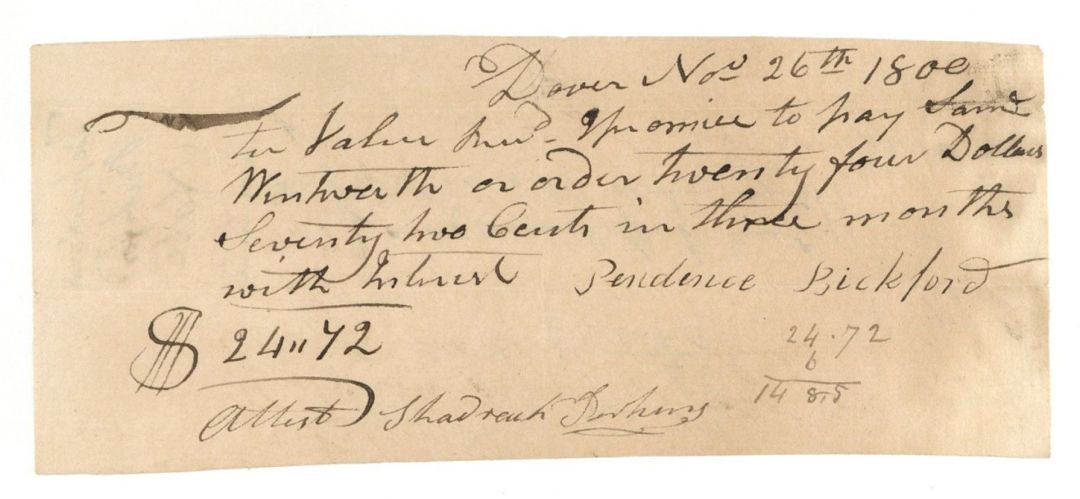 Dover Nov 26th 1800
for Value Recd. I promise to pay Saml
Wentworth or order twenty four Dollars
Seventy two Cents in three months
with Interest Pendence Bickford
$ 24"72
24.72
6
14 8.5
Attest Shadrach